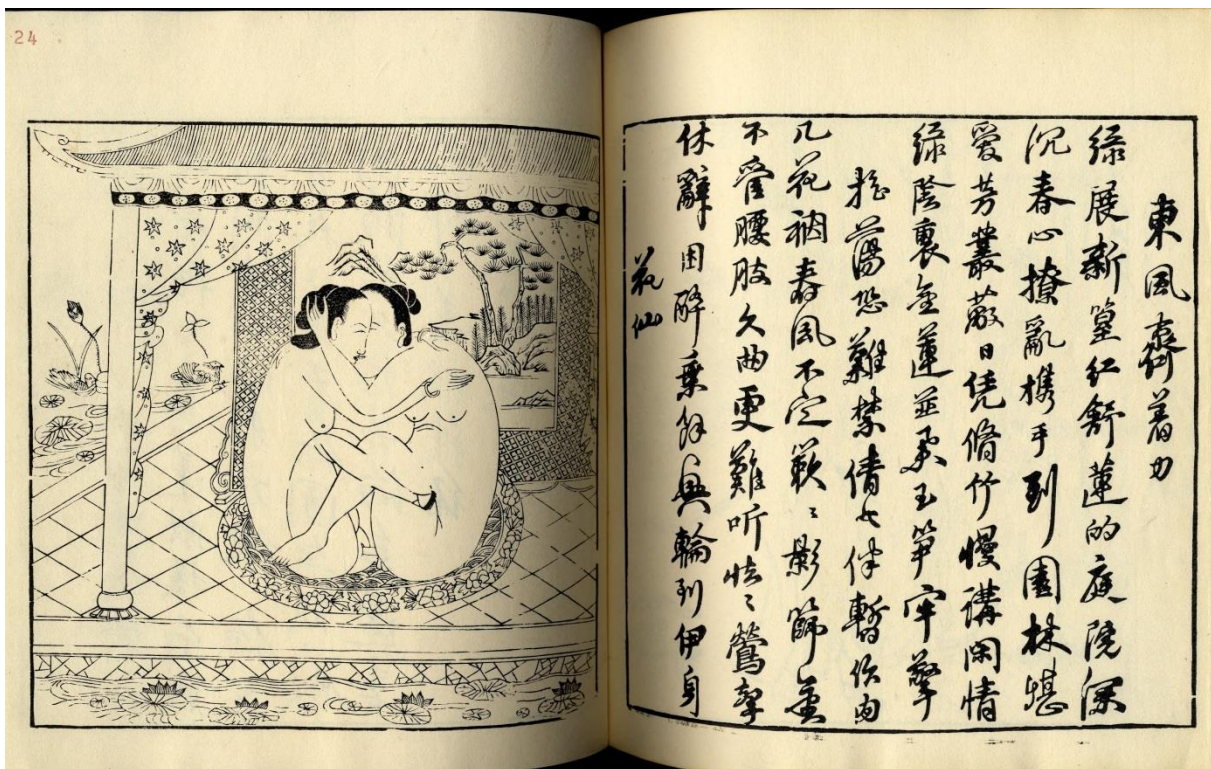 東風齊着力
綠展新篁紅舒蓮的庭院深
沉春心撩亂携手到園林堪
愛芳叢蔽日凭脩竹慢講閑情
綠陰裏金蓮並舉玉笋牢擎
搖蕩恐難禁倩女伴暫作肉
几花裀春風不定簌〻影篩金
不管腰肢久曲更難听怯〻鶯聲
休辭困醉乘餘興輪到伊身
花仙
24